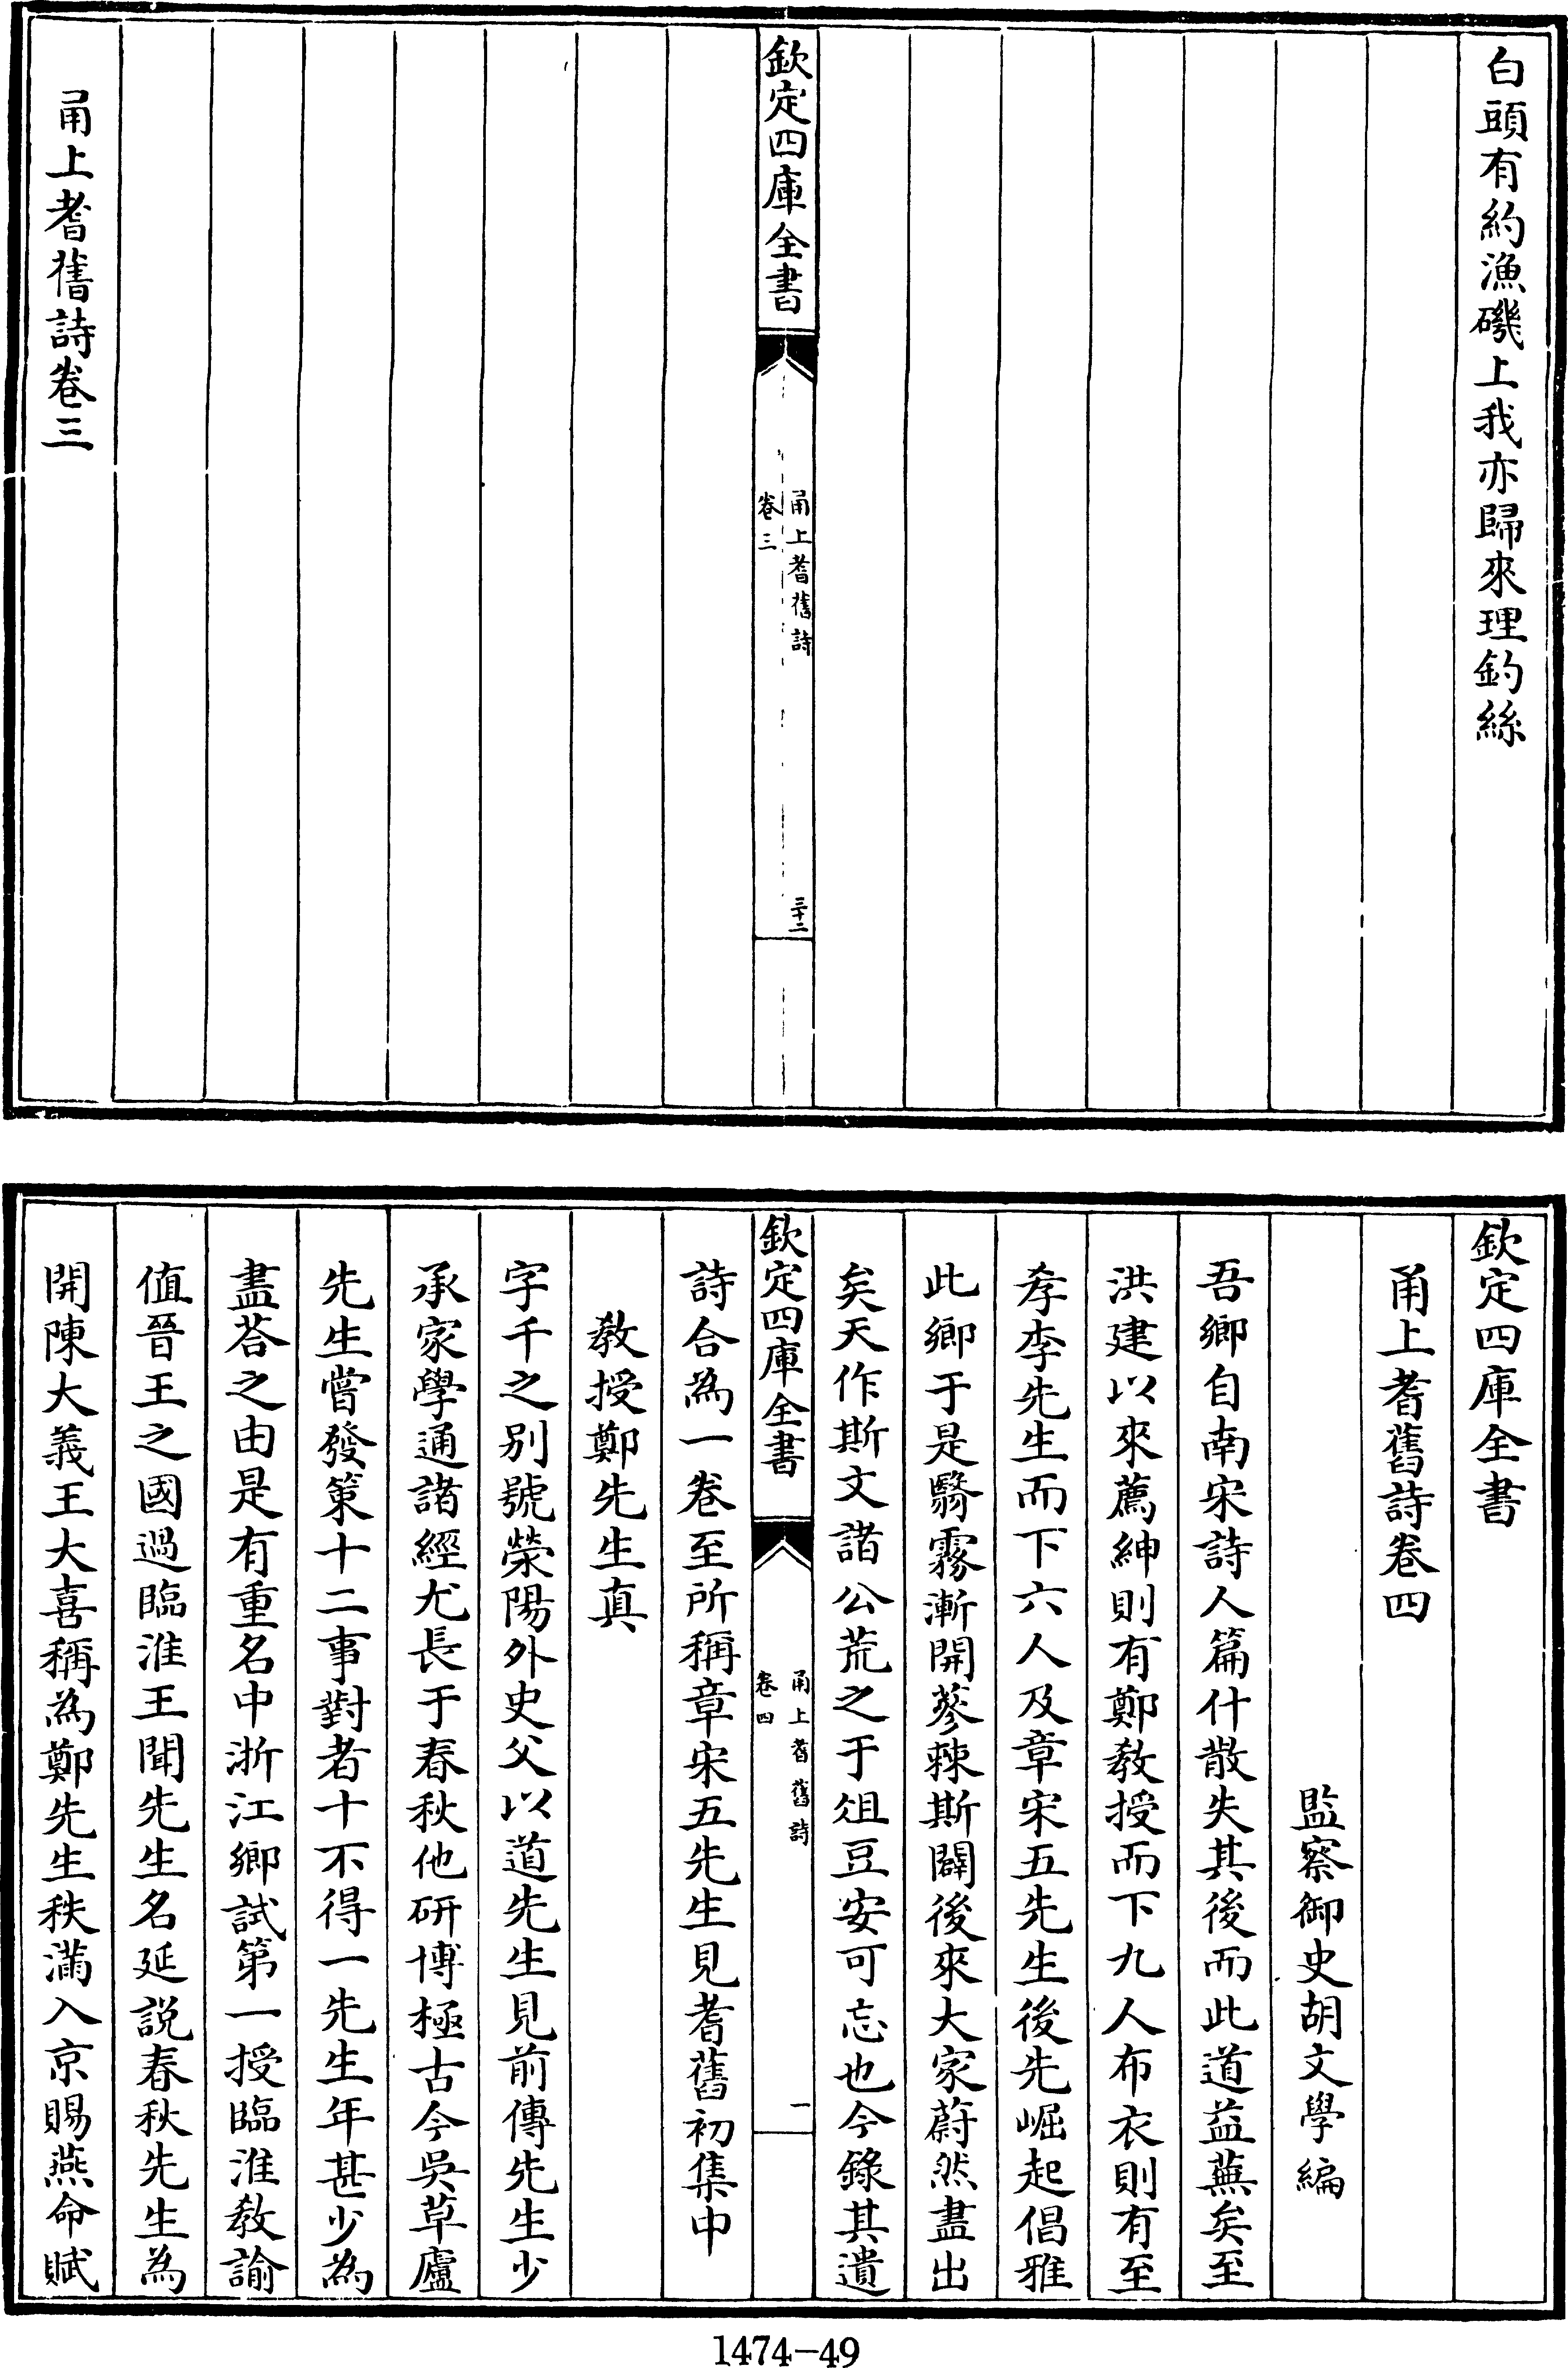 白頭有約漁磯上我亦歸來理釣絲
欽定四庫全書
甬上耆舊詩
卷三
三十二
甬上耆舊詩卷三
欽定四庫全書
甬上耆舊詩卷四
監察御史胡文學編
吾鄉自南宋詩人篇什散失其後而此道益蕪矣至
洪建以來薦紳則有鄭教授而下九人布衣則有至
孝李先生而下六人及章宋五先生後先崛起倡雅
此鄉于是翳霧漸開蔘棘斯闢後來大家蔚然盡出
矣天作斯文諸公荒之于俎豆安可忘也今錄其遺
欽定四庫全書
甬上耆舊詩
卷四
一
詩合為一卷至所稱章宋五先生見耆舊初集中
教授鄭先生真
字千之别號滎陽外史父以道先生見前傳先生少
承家學通諸經尤長于春秋他研博極古今吳草廬
先生嘗發策十二事對者十不得一先生年甚少為
盡荅之由是有重名中浙江鄉試第一授臨淮教諭
值晉王之國過臨淮王聞先生名延説春秋先生為
開陳大義王大喜稱為鄭先生秩滿入京賜燕命賦
1474-49